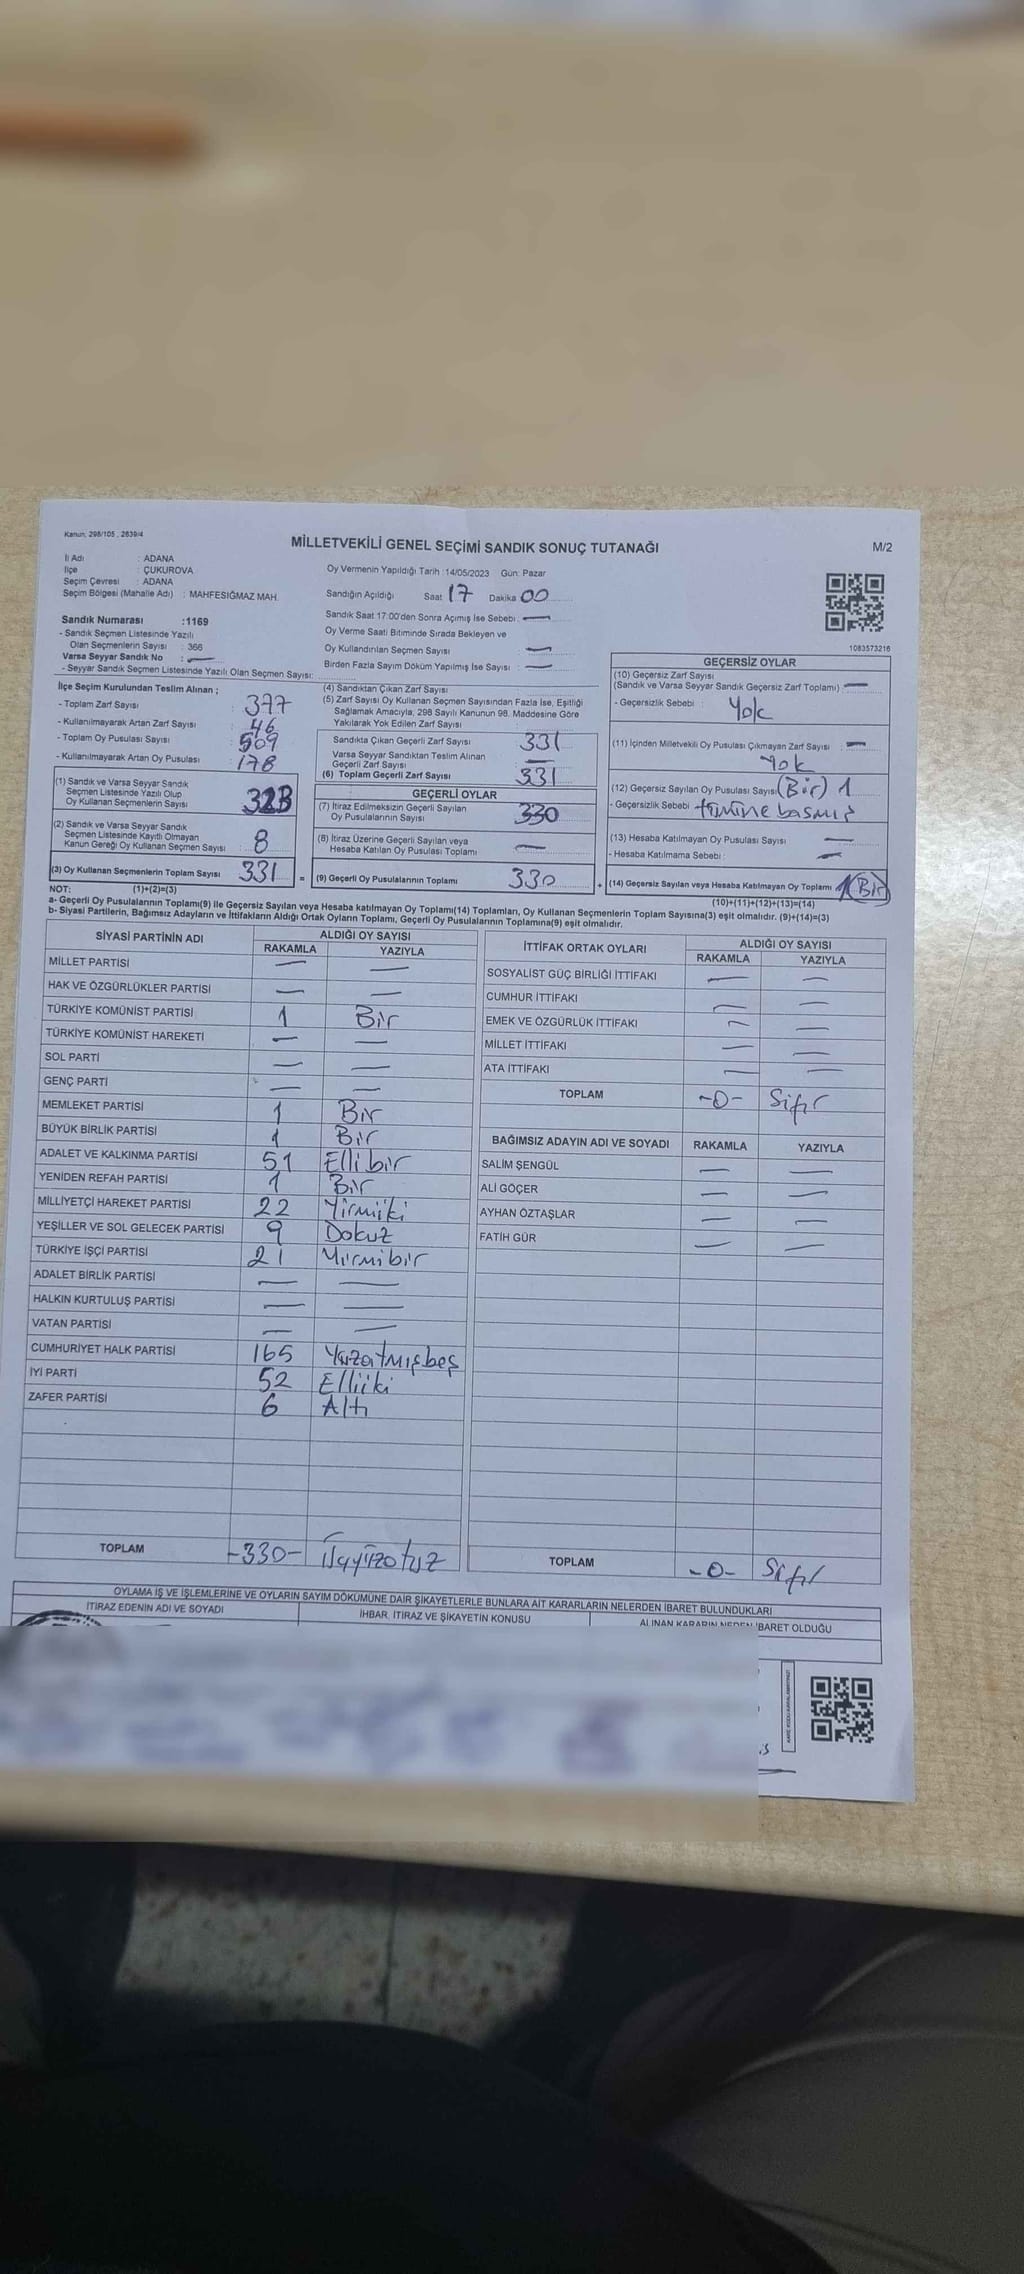 Kanun, 298/105 , 2839/4
MİLLETVEKİLİ GENEL SEÇİMİ SANDIK SONUÇ TUTANAĞI
M/2
İl Adı : ADANA
İlçe : ÇUKUROVA
Seçim Çevresi : ADANA
Seçim Bölgesi (Mahalle Adı) : MAHFESIĞMAZ MAH.
Oy Vermenin Yapıldığı Tarih :14/05/2023 Gün: Pazar
Sandığın Açıldığı Saat 17 Dakika 00
Sandık Saat 17:00'den Sonra Açımış İse Sebebi : —
Oy Verme Saati Bitiminde Sırada Bekleyen ve
Oy Kullandırılan Seçmen Sayısı —
Birden Fazla Sayım Döküm Yapılmış İse Sayısı : —
Sandık Numarası :1169
- Sandık Seçmen Listesinde Yazılı
Olan Seçmenlerin Sayısı : 366
Varsa Seyyar Sandık No : —
- Seyyar Sandık Seçmen Listesinde Yazılı Olan Seçmen Sayısı:
1083573216
İlçe Seçim Kurulundan Teslim Alınan ;
- Toplam Zarf Sayısı : 377
- Kullanılmayarak Artan Zarf Sayısı : 46
- Toplam Oy Pusulası Sayısı : 509
- Kullanılmayarak Artan Oy Pusulası : 178
(1) Sandık ve Varsa Seyyar Sandık
Seçmen Listesinde Yazılı Olup
Oy Kullanan Seçmenlerin Sayısı
(2) Sandık ve Varsa Seyyar Sandık
Seçmen Listesinde Kayıtlı Olmayan
Kanun Gereği Oy Kullanan Seçmen Sayısı : 8
(3) Oy Kullanan Seçmenlerin Toplam Sayısı 331 =
(4) Sandıktan Çıkan Zarf Sayısı
(5) Zarf Sayısı Oy Kullanan Seçmen Sayısından Fazla İse, Eşitliği
Sağlamak Amacıyla, 298 Sayılı Kanunun 98. Maddesine Göre
Yakılarak Yok Edilen Zarf Sayısı :
Sandıkta Çıkan Geçerli Zarf Sayısı 331
Varsa Seyyar Sandıktan Teslim Alınan
Geçerli Zarf Sayısı —
(6) Toplam Geçerli Zarf Sayısı 331
GEÇERLİ OYLAR
(7) İtiraz Edilmeksizin Geçerli Sayılan
Oy Pusulalarının Sayısı 330
(8) İtiraz Üzerine Geçerli Sayılan veya
Hesaba Katılan Oy Pusulası Toplamı —
(9) Geçerli Oy Pusulalarının Toplamı 330 +
GEÇERSİZ OYLAR
(10) Geçersiz Zarf Sayısı
(Sandık ve Varsa Seyyar Sandık Geçersiz Zarf Toplamı) : —
- Geçersizlik Sebebi : Yok
(11) İçinden Milletvekili Oy Pusulası Çıkmayan Zarf Sayısı : —
Yok
(12) Geçersiz Sayılan Oy Pusulası Sayısı (Bir) 1
- Geçersizlik Sebebi basmış
(13) Hesaba Katılmayan Oy Pusulası Sayısı : —
- Hesaba Katılmama Sebebi : —
(14) Geçersiz Sayılan veya Hesaba Katılmayan Oy Toplamı 1 (Bir)
NOT: (1)+(2)=(3)
(10)+(11)+(12)+(13)=(14)
a- Geçerli Oy Pusulalarının Toplamı(9) ile Geçersiz Sayılan veya Hesaba Katılmayan Oy Toplamı(14) Toplamları, Oy Kullanan Seçmenlerin Toplam Sayısına(3) eşit olmalıdır. (9)+(14)=(3)
b- Siyasi Partilerin, Bağımsız Adayların ve İttifakların Aldığı Ortak Oyların Toplamı, Geçerli Oy Pusulalarının Toplamına(9) eşit olmalıdır.
SİYASİ PARTİNİN ADI ALDIĞI OY SAYISI
RAKAMLA YAZIYLA
MİLLET PARTİSİ — —
HAK VE ÖZGÜRLÜKLER PARTİSİ — —
TÜRKİYE KOMÜNİST PARTİSİ 1 Bir
TÜRKİYE KOMÜNİST HAREKETİ — —
SOL PARTİ — —
GENÇ PARTİ — —
MEMLEKET PARTİSİ 1 Bir
BÜYÜK BİRLİK PARTİSİ 1 Bir
ADALET VE KALKINMA PARTİSİ 51 Ellibir
YENİDEN REFAH PARTİSİ 1 Bir
MİLLİYETÇİ HAREKET PARTİSİ 22 Yirmiiki
YEŞİLLER VE SOL GELECEK PARTİSİ 9 Dokuz
TÜRKİYE İŞÇİ PARTİSİ 21 Yirmibir
ADALET BİRLİK PARTİSİ — —
HALKIN KURTULUŞ PARTİSİ — —
VATAN PARTİSİ — —
CUMHURİYET HALK PARTİSİ 165 Yüzatmışbeş
İYİ PARTİ 52 Elliiki
ZAFER PARTİSİ 6 Altı
TOPLAM -330- üçyüzotuz
İTTİFAK ORTAK OYLARI ALDIĞI OY SAYISI
RAKAMLA YAZIYLA
SOSYALİST GÜÇ BİRLİĞİ İTTİFAKI — —
CUMHUR İTTİFAKI — —
EMEK VE ÖZGÜRLÜK İTTİFAKI — —
MİLLET İTTİFAKI — —
ATA İTTİFAKI — —
TOPLAM -0- Sıfır
BAĞIMSIZ ADAYIN ADI VE SOYADI RAKAMLA YAZIYLA
SALİM ŞENGÜL — —
ALİ GÖÇER — —
AYHAN ÖZTAŞLAR — —
FATİH GÜR — —
TOPLAM -0- Sıfır
OYLAMA İŞ VE İŞLEMLERİNE VE OYLARIN SAYIM DÖKÜMÜNE DAİR ŞİKAYETLERLE BUNLARA AİT KARARLARIN NELERDEN İBARET BULUNDUKLARI
İTİRAZ EDENİN ADI VE SOYADI
İHBAR, İTİRAZ VE ŞİKAYETİN KONUSU
ALINAN KARARIN NEDEN İBARET OLDUĞU